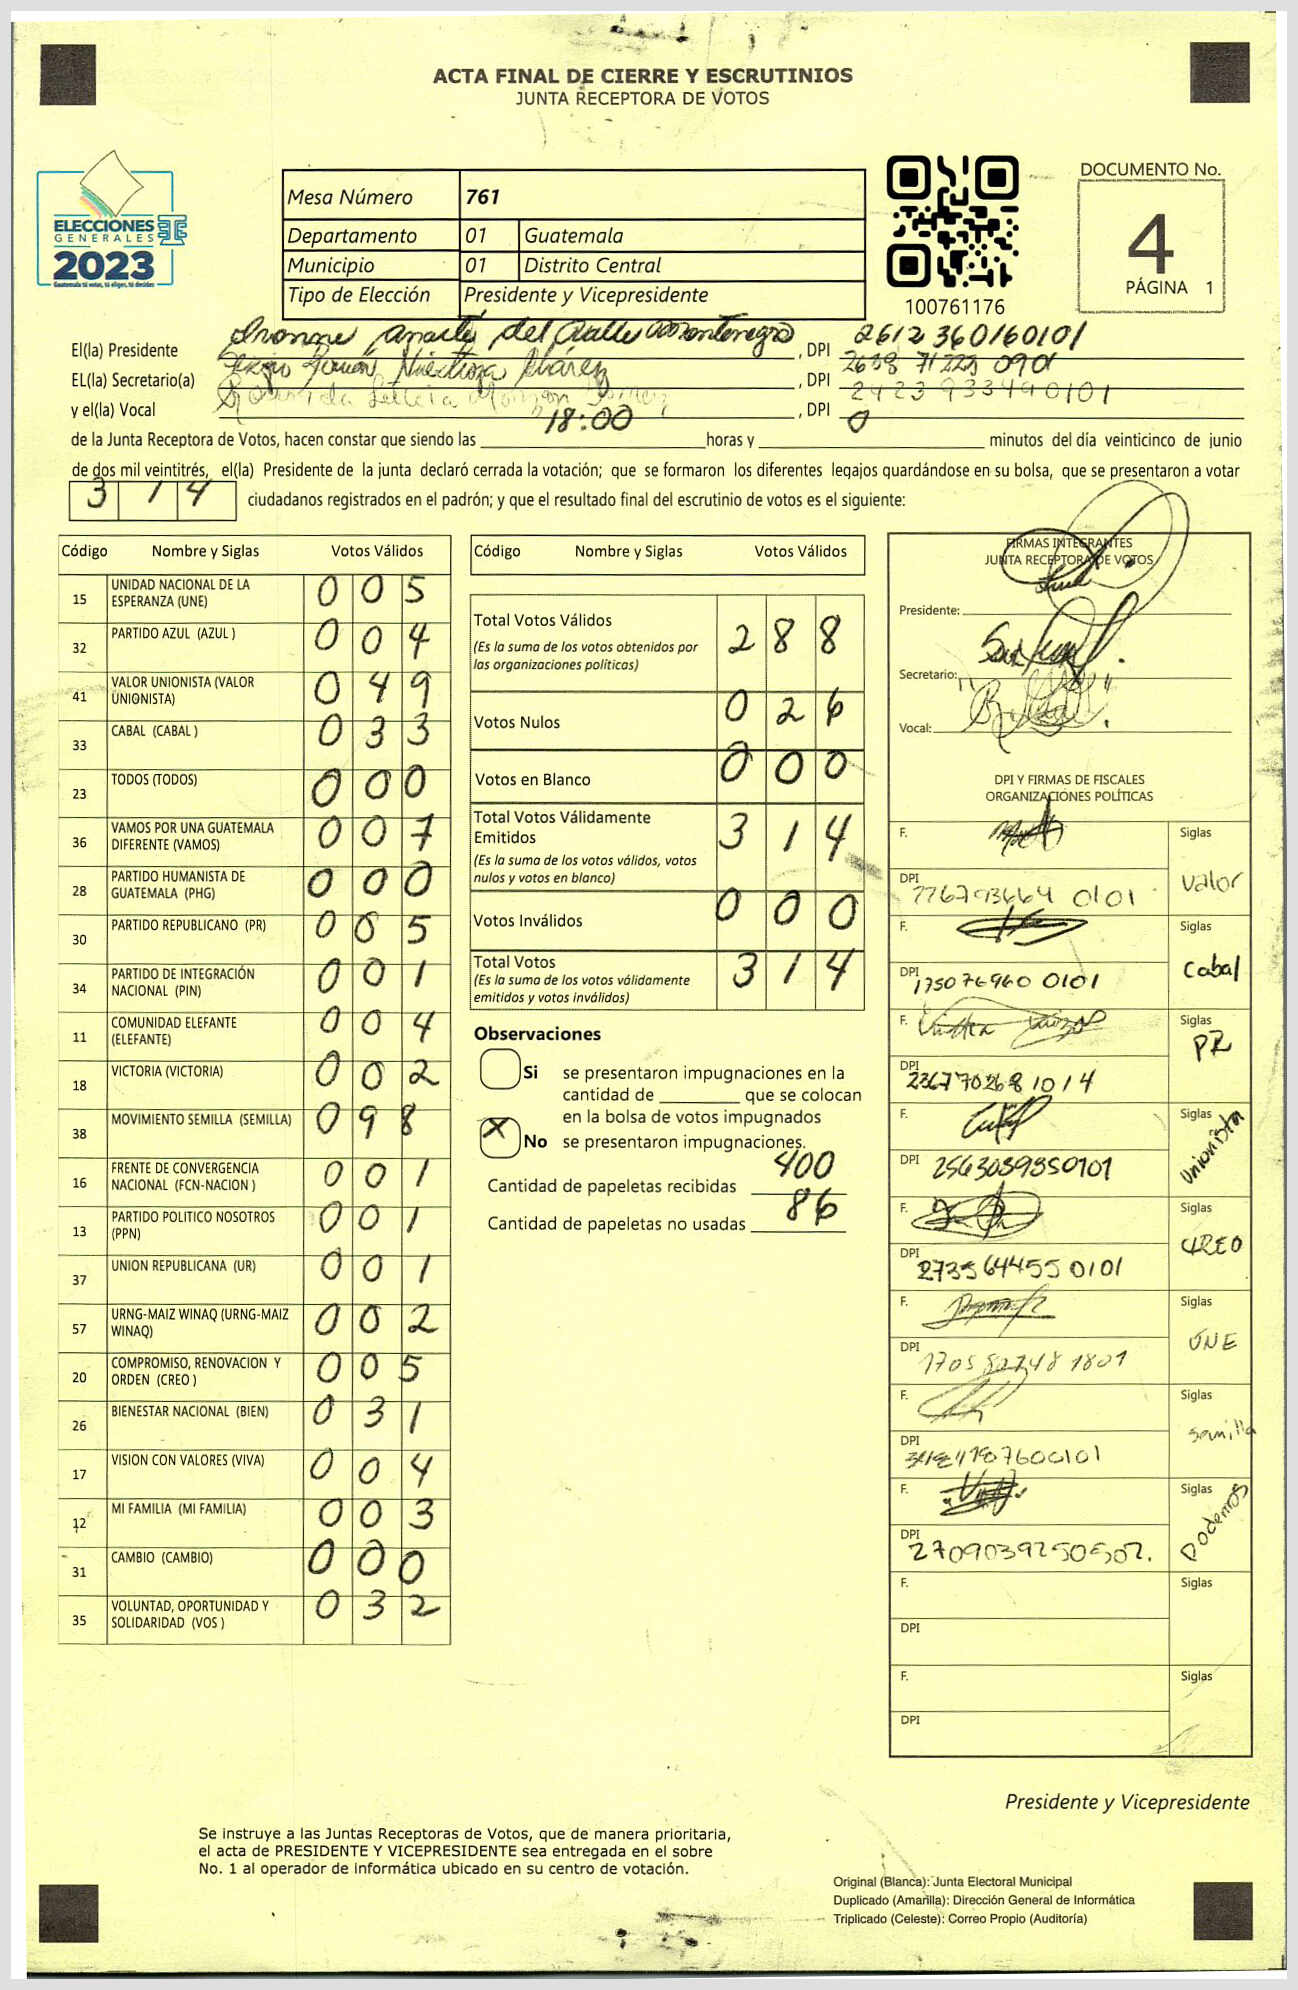 ACTA FINAL DE CIERRE Y ESCRUTINIOS
JUNTA RECEPTORA DE VOTOS
ELECCIONES
GENERALES
2023
Guatemala tú votas, tú eliges, tú decides
Mesa Número 761
Departamento 01 Guatemala
Municipio 01 Distrito Central
Tipo de Elección Presidente y Vicepresidente
100761176
DOCUMENTO No.
4
PÁGINA 1
El(la) Presidente Ivonne del Valle Montenegro, DPI 2612360160101
EL(la) Secretario(a) Álvarez, DPI 2638 71223 0901
y el(la) Vocal Leticia, DPI 2423933490101
de la Junta Receptora de Votos, hacen constar que siendo las 18:00 horas y 0 minutos del día veinticinco de junio
de dos mil veintitrés, el(la) Presidente de la junta declaró cerrada la votación; que se formaron los diferentes legajos guardándose en su bolsa, que se presentaron a votar
3 1 4 ciudadanos registrados en el padrón; y que el resultado final del escrutinio de votos es el siguiente:
Código Nombre y Siglas Votos Válidos
15 UNIDAD NACIONAL DE LA ESPERANZA (UNE) 0 0 5
32 PARTIDO AZUL (AZUL ) 0 0 4
41 VALOR UNIONISTA (VALOR UNIONISTA) 0 4 9
33 CABAL (CABAL ) 0 3 3
23 TODOS (TODOS) 0 0 0
36 VAMOS POR UNA GUATEMALA DIFERENTE (VAMOS) 0 0 7
28 PARTIDO HUMANISTA DE GUATEMALA (PHG) 0 0 0
30 PARTIDO REPUBLICANO (PR) 0 0 5
34 PARTIDO DE INTEGRACIÓN NACIONAL (PIN) 0 0 1
11 COMUNIDAD ELEFANTE (ELEFANTE) 0 0 4
18 VICTORIA (VICTORIA) 0 0 2
38 MOVIMIENTO SEMILLA (SEMILLA) 0 9 8
16 FRENTE DE CONVERGENCIA NACIONAL (FCN-NACION ) 0 0 1
13 PARTIDO POLITICO NOSOTROS (PPN) 0 0 1
37 UNION REPUBLICANA (UR) 0 0 1
57 URNG-MAIZ WINAQ (URNG-MAIZ WINAQ) 0 0 2
20 COMPROMISO, RENOVACION Y ORDEN (CREO ) 0 0 5
26 BIENESTAR NACIONAL (BIEN) 0 3 1
17 VISION CON VALORES (VIVA) 0 0 4
12 MI FAMILIA (MI FAMILIA) 0 0 3
31 CAMBIO (CAMBIO) 0 0 0
35 VOLUNTAD, OPORTUNIDAD Y SOLIDARIDAD (VOS ) 0 3 2
Código Nombre y Siglas Votos Válidos
Total Votos Válidos 2 8 8
(Es la suma de los votos obtenidos por
las organizaciones políticas)
Votos Nulos 0 2 6
Votos en Blanco 0 0 0
Total Votos Válidamente
Emitidos 3 1 4
(Es la suma de los votos válidos, votos
nulos y votos en blanco)
Votos Inválidos 0 0 0
Total Votos 3 1 4
(Es la suma de los votos válidamente
emitidos y votos inválidos)
Observaciones
Si se presentaron impugnaciones en la
cantidad de ________ que se colocan
en la bolsa de votos impugnados
X No se presentaron impugnaciones.
Cantidad de papeletas recibidas 400
Cantidad de papeletas no usadas 86
FIRMAS INTEGRANTES
JUNTA RECEPTORA DE VOTOS
Presidente:
Secretario:
Vocal:
DPI Y FIRMAS DE FISCALES
ORGANIZACIONES POLÍTICAS
F. Siglas Valor
DPI 0101
F. Siglas Cabal
DPI 175076960 0101
F. Siglas PR
DPI 2367702681014
F. Siglas Unionista
DPI 2563039350101
F. Siglas CREO
DPI 2735644550101
F. Siglas UNE
DPI 1801
F. Siglas Semilla
DPI
F. Siglas Podemos
DPI 2709039250502.
F. Siglas
DPI
F. Siglas
DPI
Presidente y Vicepresidente
Se instruye a las Juntas Receptoras de Votos, que de manera prioritaria,
el acta de PRESIDENTE Y VICEPRESIDENTE sea entregada en el sobre
No. 1 al operador de informática ubicado en su centro de votación.
Original (Blanca): Junta Electoral Municipal
Duplicado (Amarilla): Dirección General de Informática
Triplicado (Celeste): Correo Propio (Auditoría)